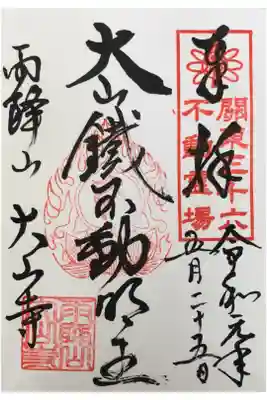 奉拝
關東三十六
不動霊場
令和元年
五月二十五日
大山鐵不動明王
雨降山
大山寺